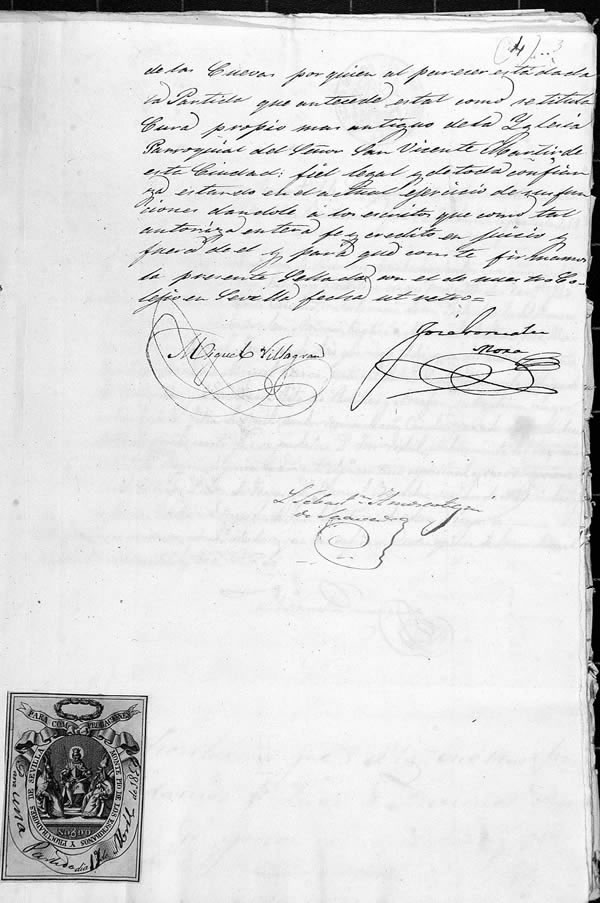 (4)
de las Cuevas por quien al parecer está dada
la Partida que antecede es tal como se titula
Cura propio mas antiguo de la Yglesia
Parroquial del Señor San Vicente Martir de
esta Ciudad: fiel legal y de toda confian
za estando en el actual ejercicio de sus fun
ciones dandole á los escritos que como tal
autoriza entera fe y credito en juicio y
fuera de el y para que conste firmamos
la presente sellada con el de nuestro Co-
legio en Sevilla fecha ut retro=
Miguel Villagran
Jose
Rosa
PARA COMPROBACIONES
MONTE PIO DE LOS ESCRIBANOS Y PROCURADORES DE SEVILLA
NO8DO
Para una
Partida dia 17 de